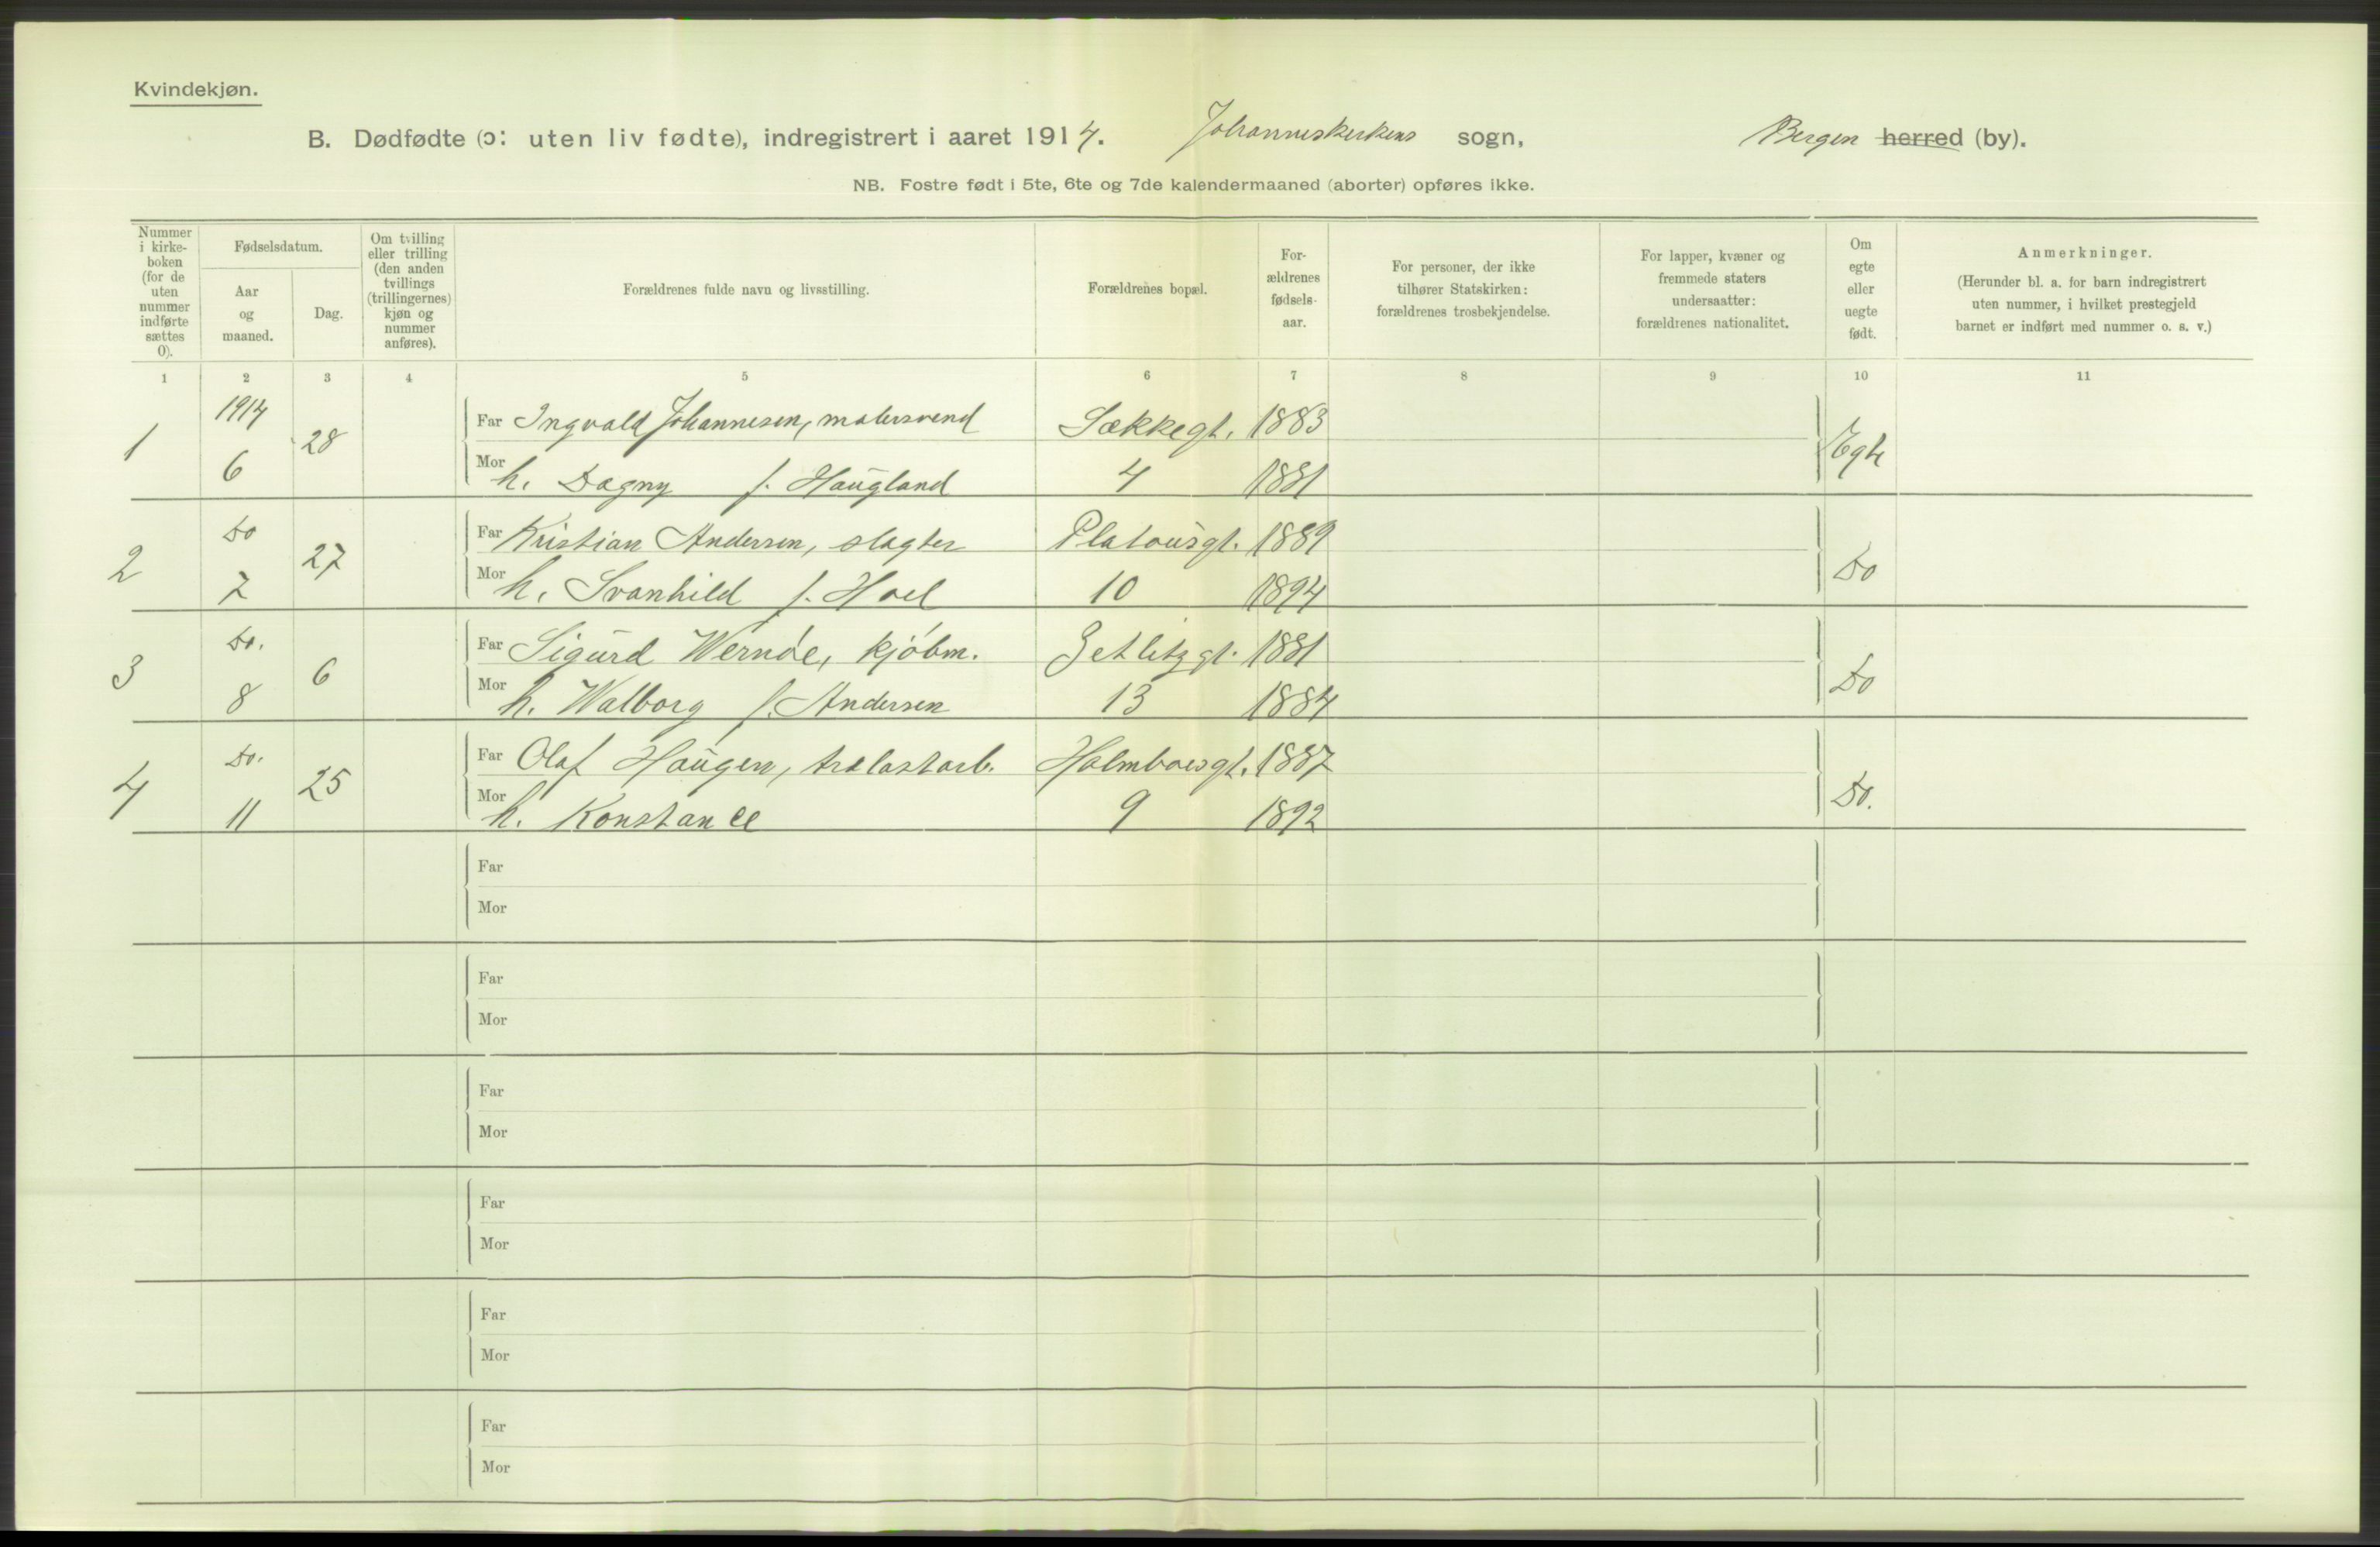 Kvindekjøn.
B. Dødfødte (ɔ: uten liv fødte), indregistrert i aaret 1914. Johanneskirkens sogn, Bergen herred (by).
NB. Fostre født i 5te, 6te og 7de kalendermaaned (aborter) opføres ikke.
Nummer i kirke- boken (for de uten nummer indførte sættes 0).
Fødselsdatum.
Aar og maaned.
Dag.
Om tvilling eller trilling (den anden tvillings (trillingernes) kjøn og nummer anføres).
Forældrenes fulde navn og livsstilling.
Forældrenes bopæl.
For- ældrenes fødsels- aar.
For personer, der ikke tilhører Statskirken: forældrenes trosbekjendelse.
For lapper, kvæner og fremmede staters undersaatter: forældrenes nationalitet.
Om egte eller uegte født.
Anmerkninger.
(Herunder bl. a. for barn indregistrert uten nummer, i hvilket prestegjeld barnet er indført med nummer o. s. v.)
1 2 3 4 5 6 7 8 9 10 11
1 1914 6 28 Far Ingvald Johannesen, malersvend Sækkegt. 1883 Egte
Mor h. Dagny f. Haugland 4 1881
2 Do 7 27 Far Kristian Andersen, slagter Platousgt. 1889 Do
Mor h. Svanhild f. Hoel 10 1894
3 Do. 8 6 Far Sigurd Wernøe, kjøbm. Zetlitzgt. 1881 Do
Mor h. Walborg f. Andersen 13 1884
4 Do. 11 25 Far Olaf Haugen, trælastarb. Holmboesgt. 1887 Do.
Mor h. Konstance 9 1892
Far
Mor
Far
Mor
Far
Mor
Far
Mor
Far
Mor
Far
Mor